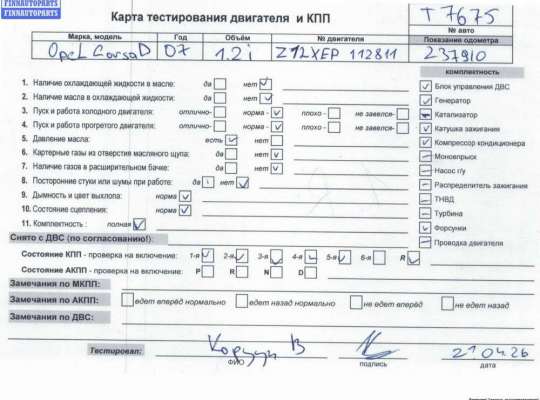 FINNAUTOPARTS
FINNAUTOPARTS
Карта тестирования двигателя и КПП
T 7675
№ авто
Марка, модель Год Объём № двигателя Показания одометра
Opel Corsa D 07 1.2i Z12XEP 112811 237910
комплектность
1. Наличие охлаждающей жидкости в масле: да нет
Блок управления ДВС
2. Наличие масла в охлаждающей жидкости: да нет
Генератор
3. Пуск и работа холодного двигателя: отлично- норма - плохо - не завелся-
Катализатор
4. Пуск и работа прогретого двигателя: отлично- норма - плохо - не завелся-
Катушка зажигания
5. Давление масла: есть нет
Компрессор кондиционера
6. Картерные газы из отверстия масляного щупа: да нет
Моновпрыск
7. Наличие газов в расширительном бачке: да нет
Насос г/у
8. Посторонние стуки или шумы при работе: да нет
Распределитель зажигания
9. Дымность и цвет выхлопа: норма
ТНВД
10. Состояние сцепления: норма
Турбина
11. Комплектность : полная
Форсунки
Снято с ДВС (по согласованию!):
Проводка двигателя
Состояние КПП - проверка на включение: 1-я 2-я 3-я 4-я 5-я 6-я R
Состояние АКПП - проверка на включение: P R N D
Замечания по МКПП:
Замечания по АКПП: едет вперёд нормально едет назад нормально не едет вперёд не едет назад
Замечания по ДВС:
Тестировал: В 21 04.26
ФИО подпись дата